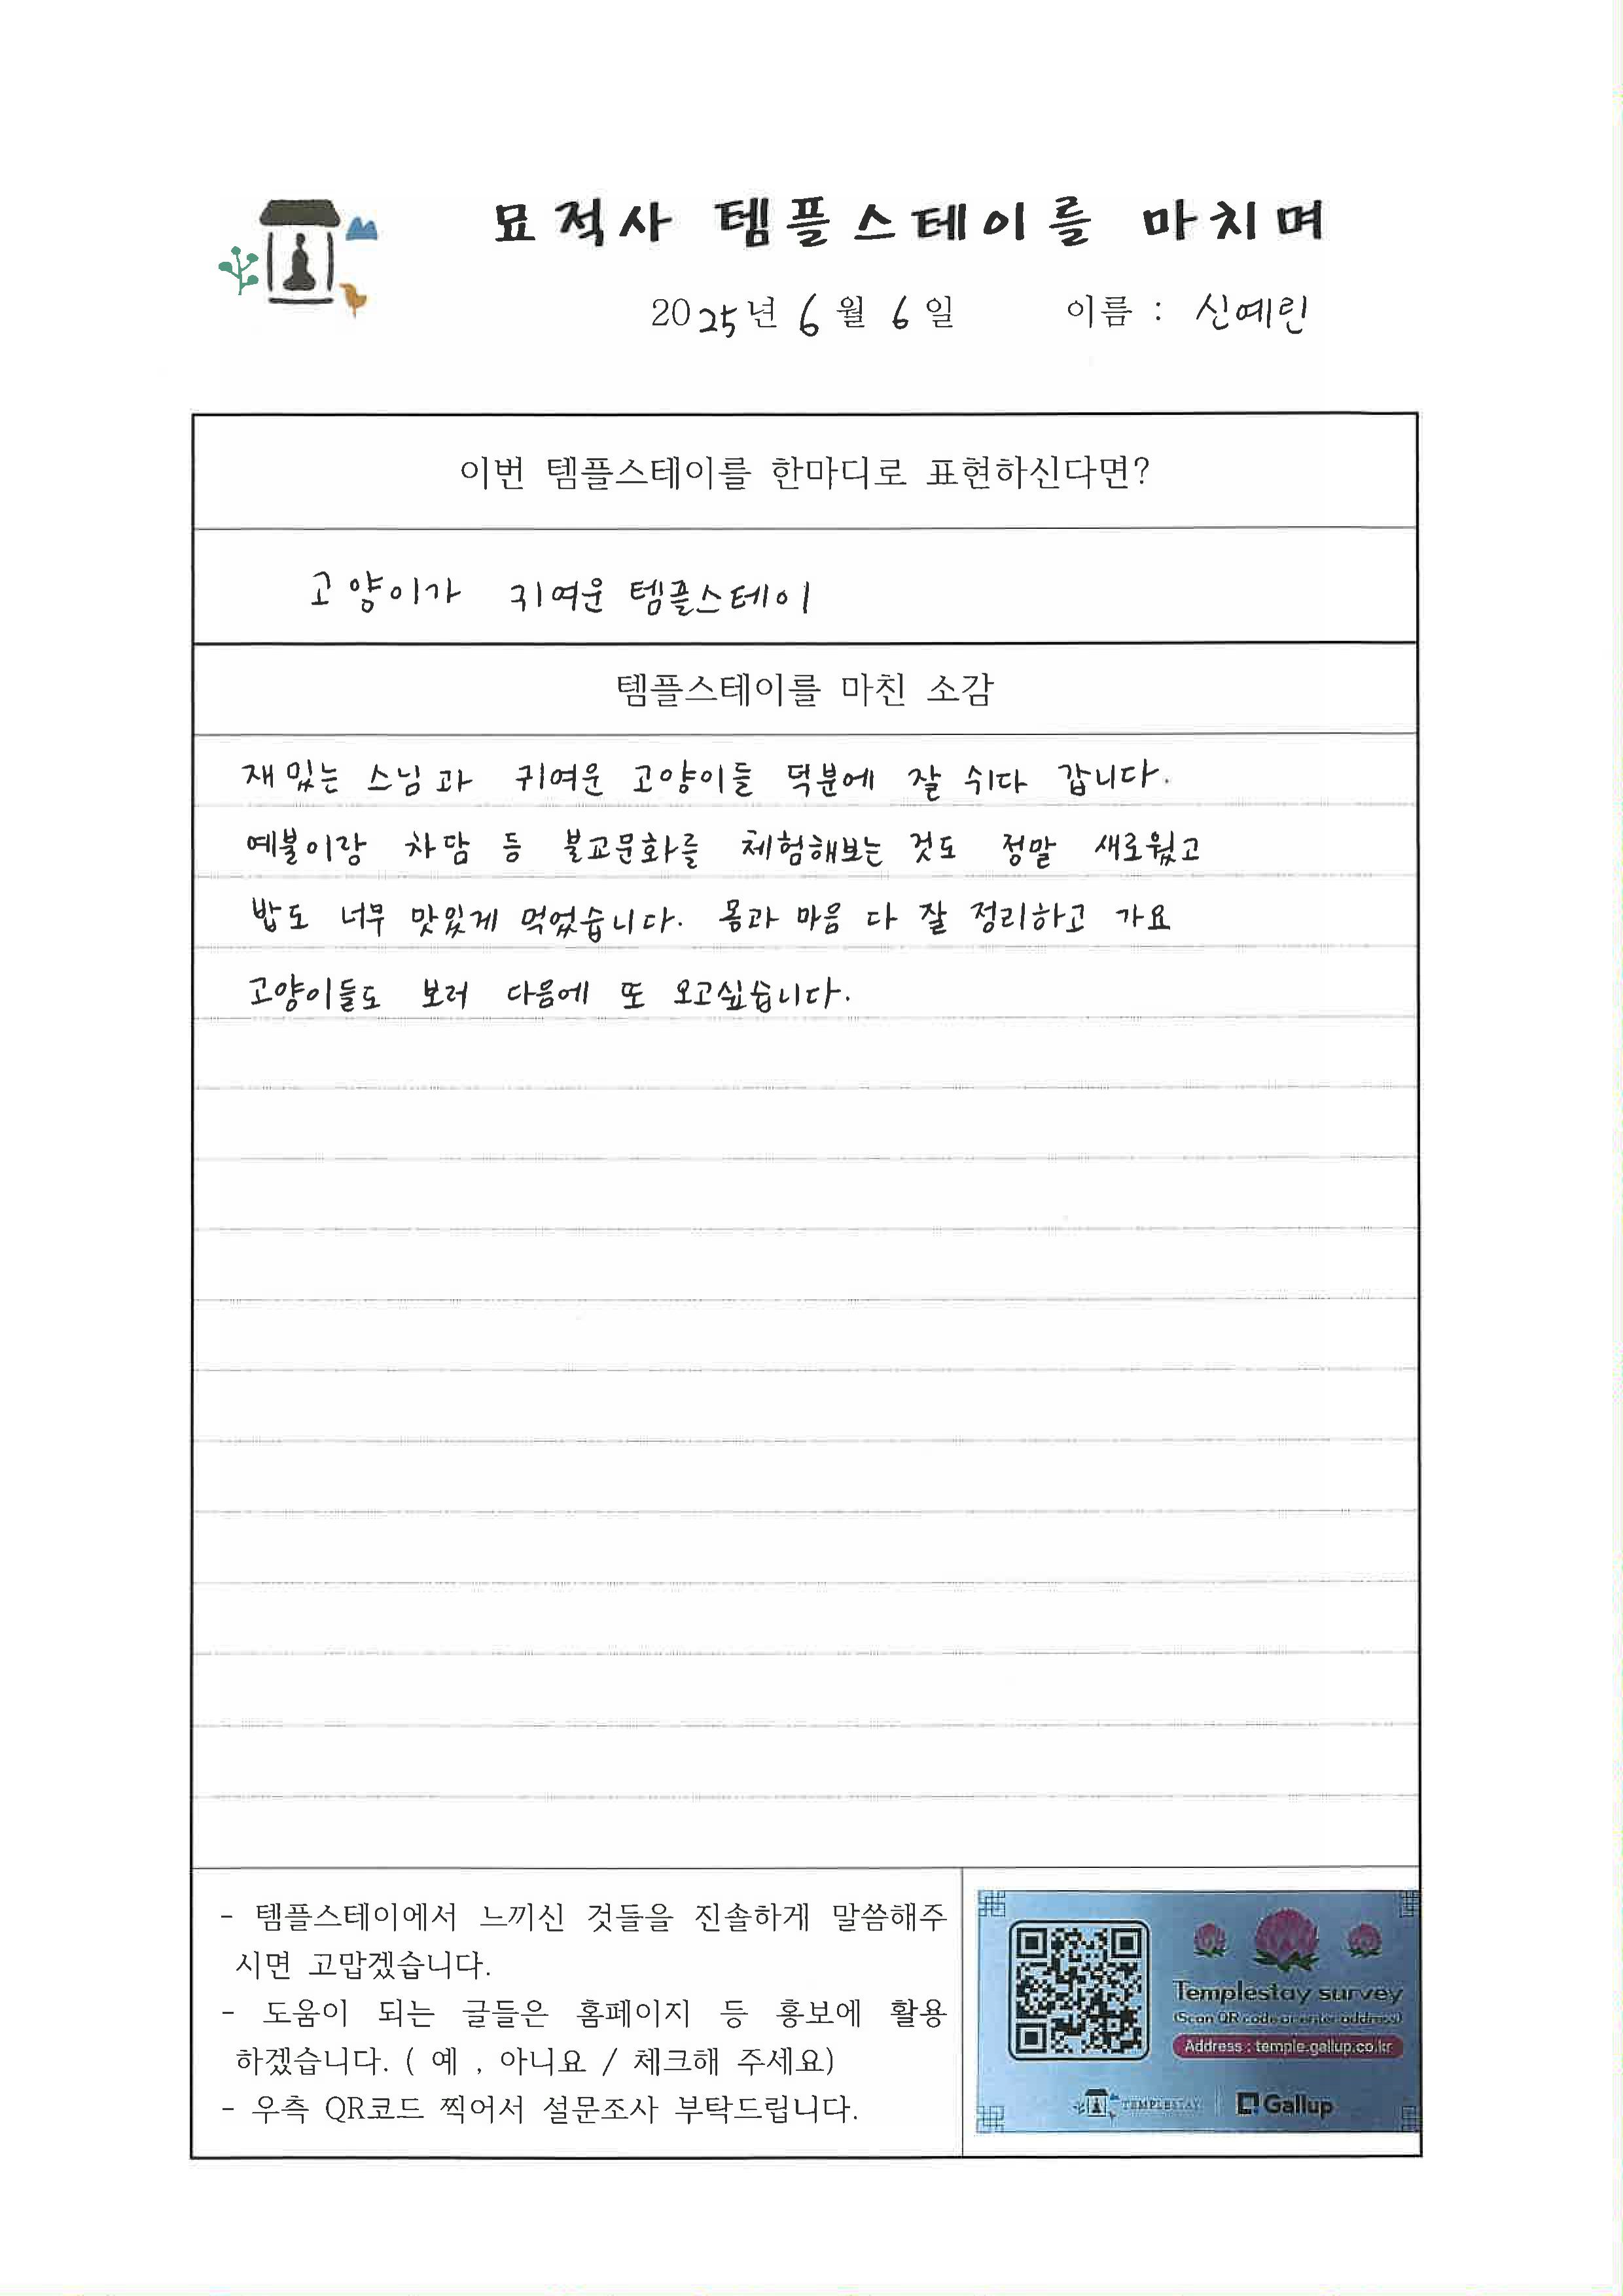 묘적사 템플스테이를 마치며
2025년 6월 6일 이름 : 신예린
이번 템플스테이를 한마디로 표현하신다면?
고양이가 귀여운 템플스테이
템플스테이를 마친 소감
재밌는 스님과 귀여운 고양이들 덕분에 잘 쉬다 갑니다.
예불이랑 차담 등 불교문화를 체험해보는 것도 정말 새로웠고
밥도 너무 맛있게 먹었습니다. 몸과 마음 다 잘 정리하고 가요
고양이들도 보러 다음에 또 오고싶습니다.
- 템플스테이에서 느끼신 것들을 진솔하게 말씀해주
시면 고맙겠습니다.
- 도움이 되는 글들은 홈페이지 등 홍보에 활용
하겠습니다. ( 예 , 아니요 / 체크해 주세요)
- 우측 QR코드 찍어서 설문조사 부탁드립니다.
Templestay survey
(Scan QR code or enter address)
Address : temple.gallup.co.kr
TEMPLESTAY Gallup